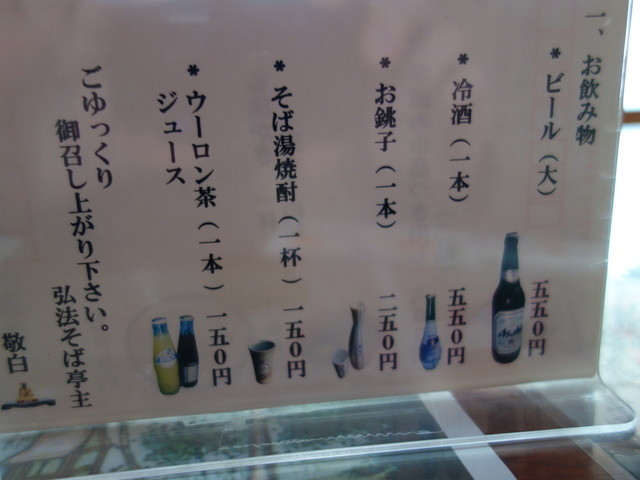 一、お飲み物
*ビール(大) 五五〇円
*冷酒(一本) 五五〇円
*お銚子(一本) 二五〇円
*そば湯焼酎(一杯) 一五〇円
*ウーロン茶(一本) 一五〇円
ジュース
ごゆっくり
御召し上がり下さい。
弘法そば亭主
敬白
Asahi